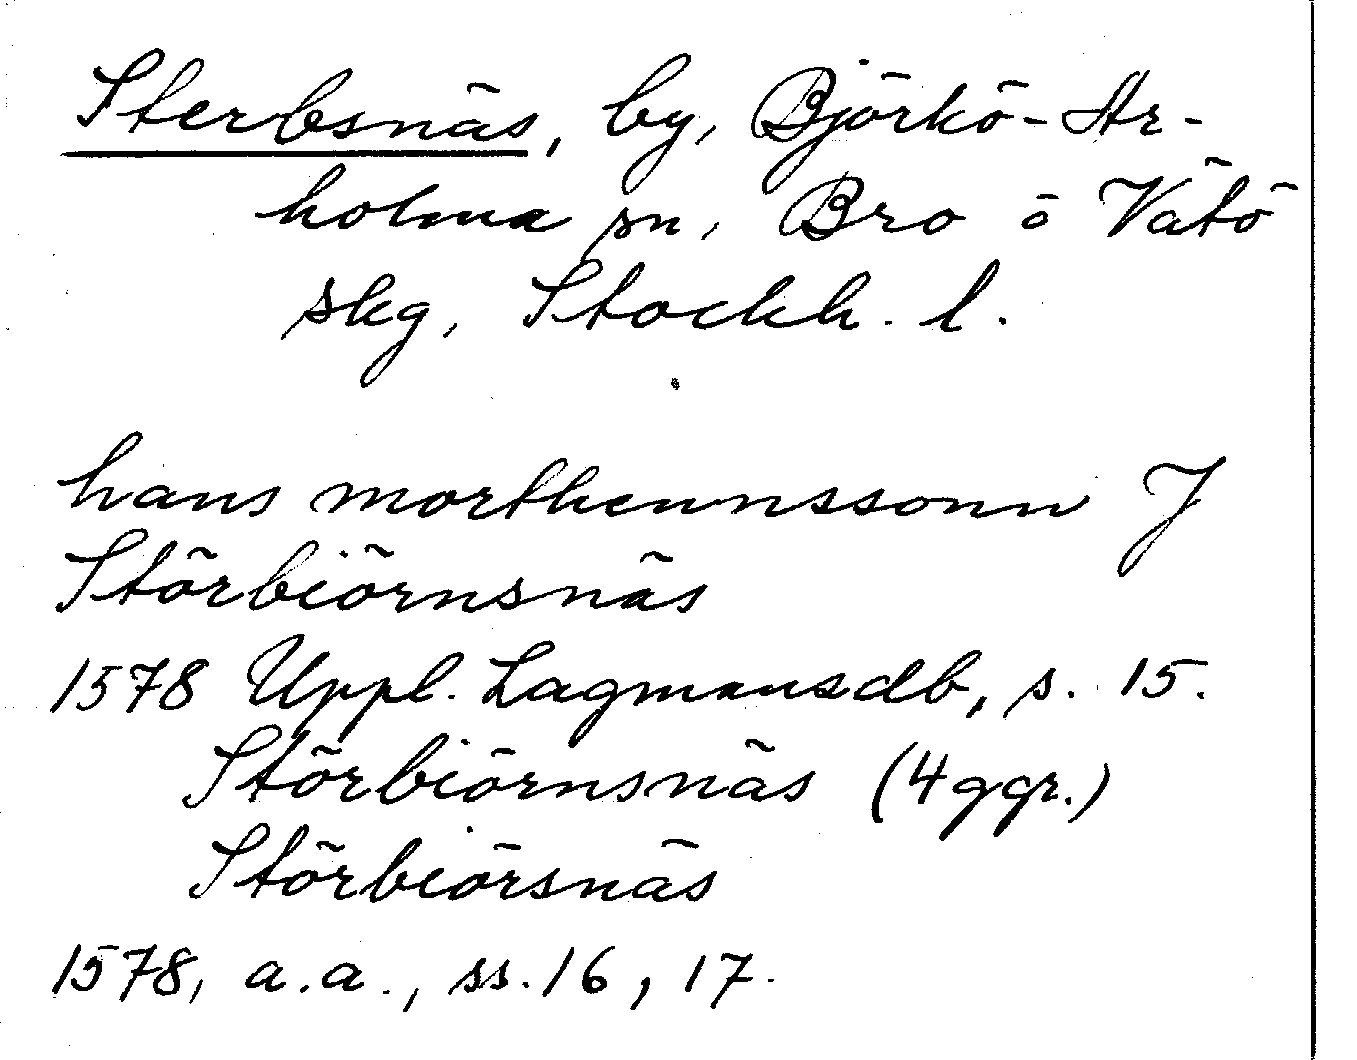 Sterbsnäs, by, Björkö-Ar-
holma sn, Bro o Vätö
skg, Stockh. l.
hans morthennssonn J
Störbiörnsnäs
1578 Uppl. Lagmansdb, s. 15.
Störbiörnsnäs (4 ggr.)
Störbiörsnäs
1578, a.a., ss. 16, 17.